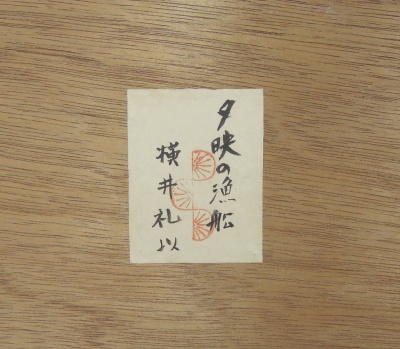 夕映の漁船
横井礼以